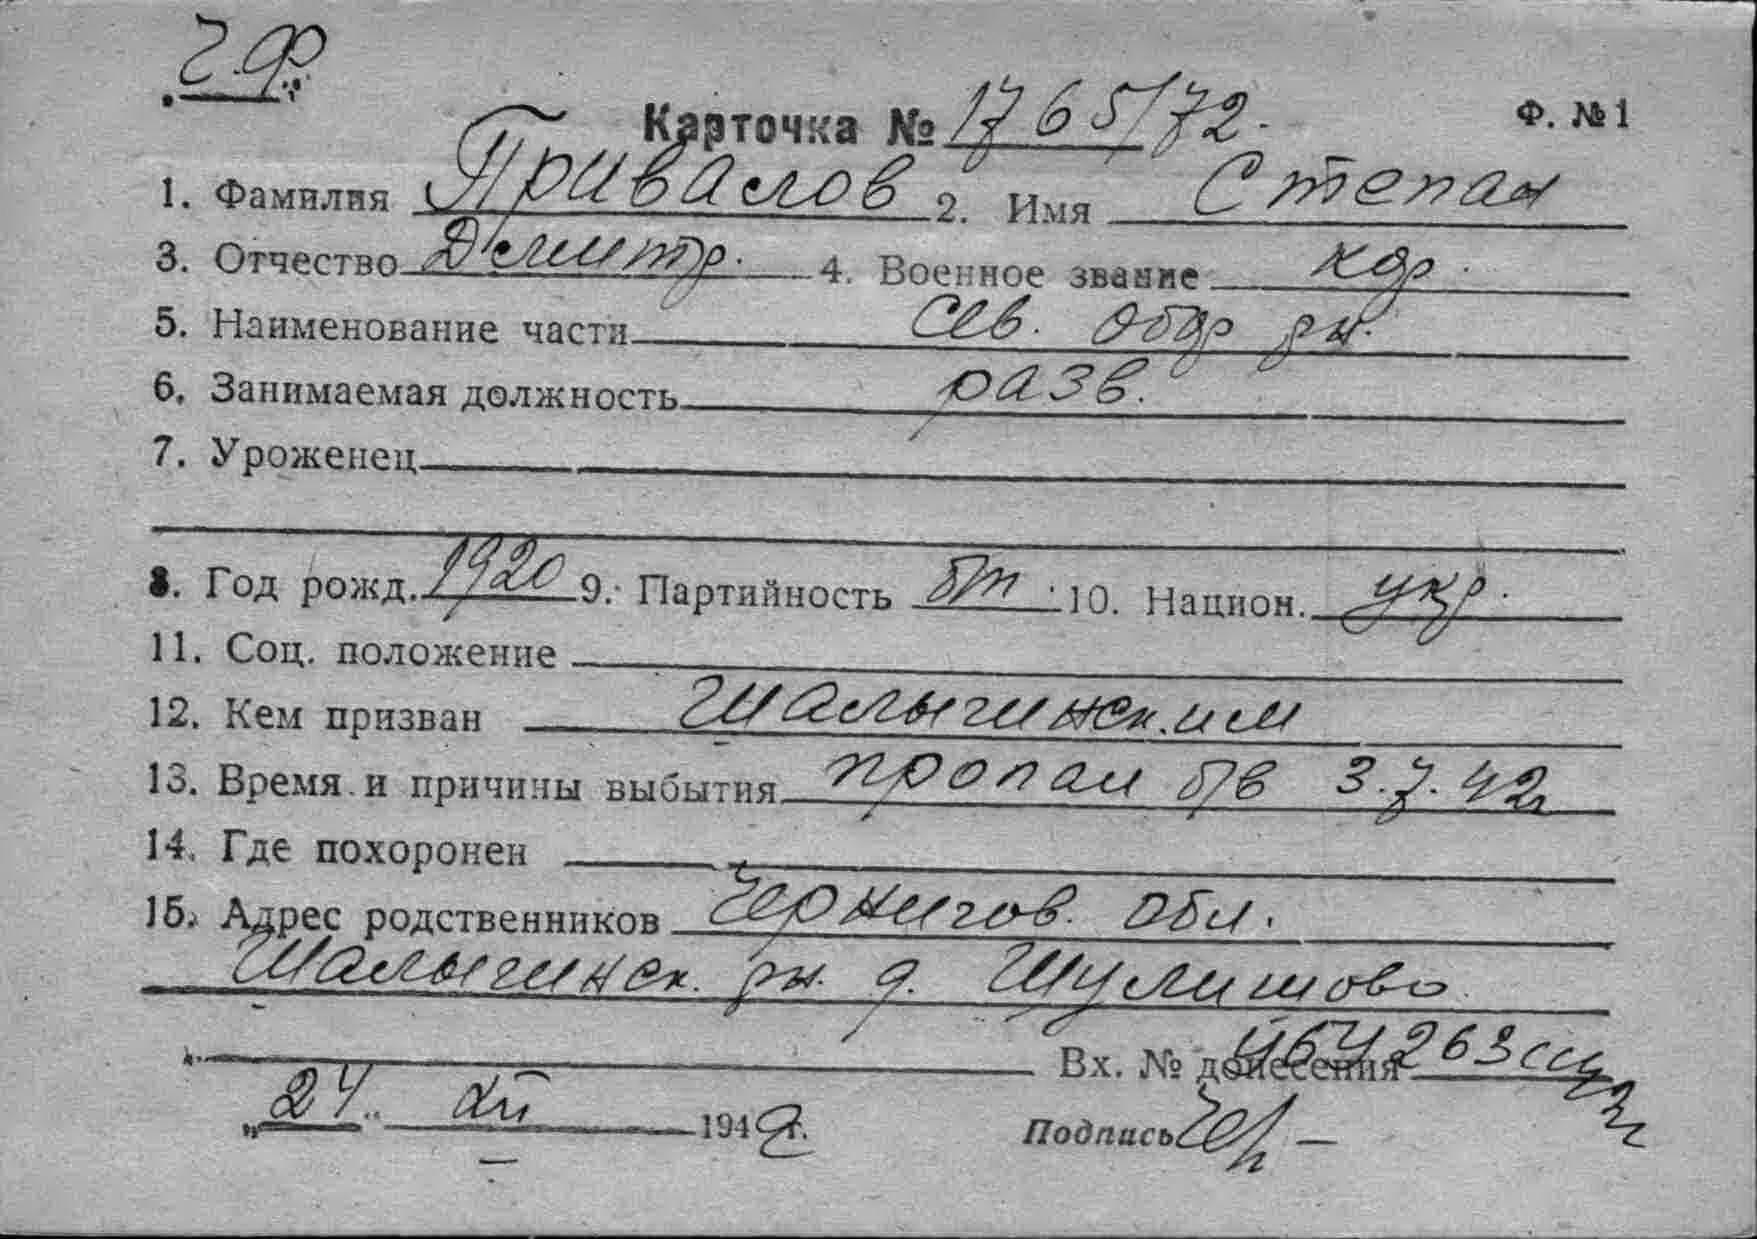 Ч.Ф.
Карточка № 1765/72. Ф. №1
1. Фамилия Привалов 2. Имя Степан
3. Отчество Дмитр. 4. Военное звание кр.
5. Наименование части Сев. обор рн.
6. Занимаемая должность разв.
7. Уроженец
8. Год рожд. 1920 9. Партийность б/п. 10. Национ. укр.
11. Соц. положение
12. Кем призван Шалыгинск.им
13. Время и причины выбытия пропал б/в 3.7.42г
14. Где похоронен
15. Адрес родственников Чернигов. обл.
Шалыгинск. рн. д. Шулишово
Вх. № донесения
„24" XII 194 г. Подпись